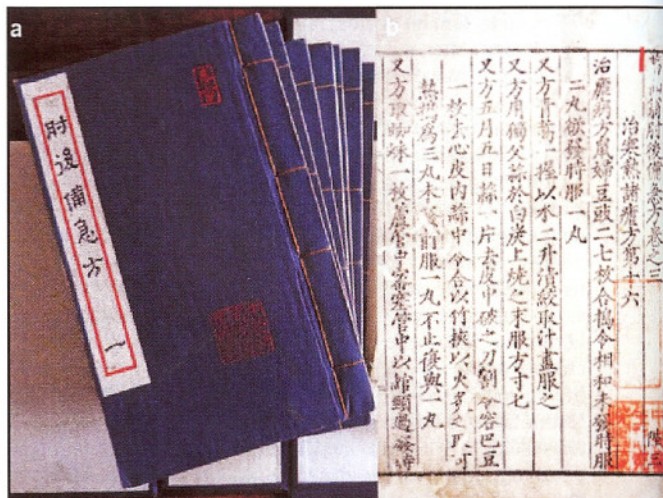 a
肘後備急方 一
b
肘後備急方卷之三
治寒熱諸瘧方第十六
治瘧病方鼠婦豆豉二七枚合搗令相和未發時服
二丸欲發時服一丸
又方青蒿一握以水二升漬絞取汁盡服之
又方用獨父蒜於白炭上燒之末服方寸七
又方五月五日蒜一片去皮中破之刀割令容巴豆
一枚去心皮內蒜中令合以竹挾以火炙之取可
熱搗爲三丸未發前服一丸不止復與一丸
又方取蜘蛛一枚蘆管中密塞管中以綰頸過發時